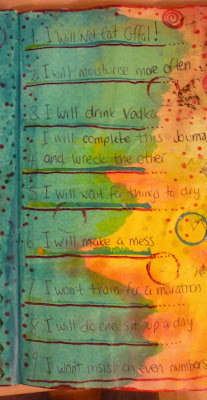 1. I will Not Eat Offal!
2. I will moisturise more often...
3. I will drink Vodka
I will complete this Journa
4 and wreck the other
5 I will wait for things to dry
6. I will make a mess
7 I won't train for a marathon
8 I will do one sit up a day
9 I wont insist on even numbers